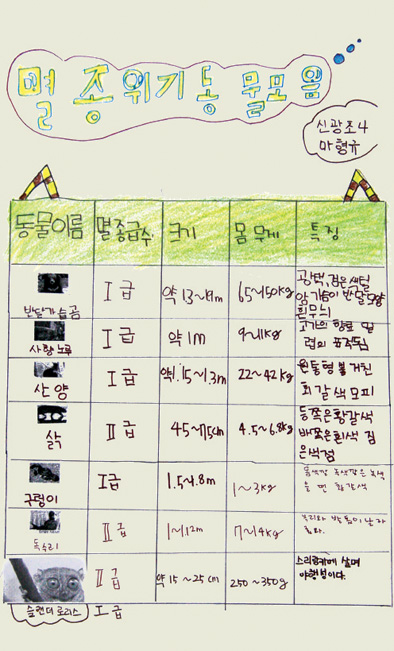 멸종위기동물모음
신광초4
마형규
동물이름 멸종급수 크기 몸무게 특징
반달가슴곰 I급 약 1.3~1.9m 65~150kg 광택, 검은색털
앞가슴이 반달모양
흰무늬
사향노루 I급 약 1m 9~11kg
산양 I급 약1.15~1.3m 22~42kg 원통형 뿔 거친
회갈색 모피
삵 II급 45~75cm 4.5~6.8kg 등쪽은 황갈색
배쪽은 흰색 검
은색점
구렁이 I급 1.5~1.8m 1~3kg
황갈색
독수리 II급 1~1.12m 7~14kg
슬렌더로리스 II급 약 15~25cm 250~350g 스리랑카에 살며
야행성이다.
I급